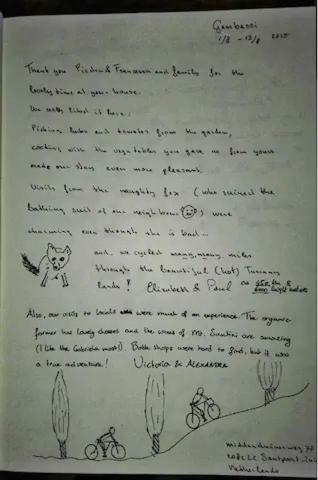 Gambassi
1/8 - 13/8 2015
Thank you & Francesca and family for the
lovely time at your house.
We really liked it here:
Picking herbs and tomatoes from the garden,
cooking with the vegetables you gave us from yours
made our stay even more pleasant.
Visits from the naughty fox (who ruined the
bathing suit of our neighbours) were
charming even though she is bad...
and, we cycled many, many miles
through the beautiful (hot) Tuscany
lands! Elizabeth & Paul
Also, our visits to locals were much of an experience. The organic
farmer has lovely cheeses and the wines of Mr. Santini are amazing
(I like the Gabriela most!). Both shops were hard to find, but it was
a true adventure! Victoria & Alexandra
Netherlands